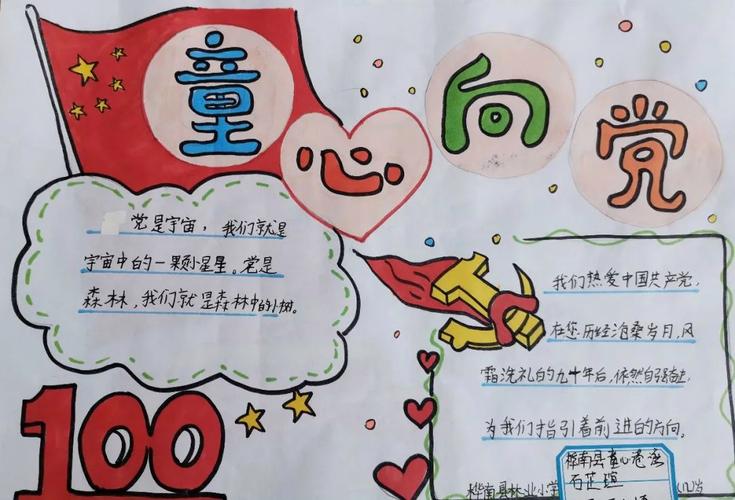 童心向党
党是宇宙，我们就是
宇宙中的一颗小星星。党是
森林，我们就是森林中的小树。
100
我们热爱中国共产党，
在您历经沧桑岁月，风
霜洗礼的九十年后，依然自强奋进，
为我们指引着前进的方向。
桦南县林业小学
桦南县童心
石芷